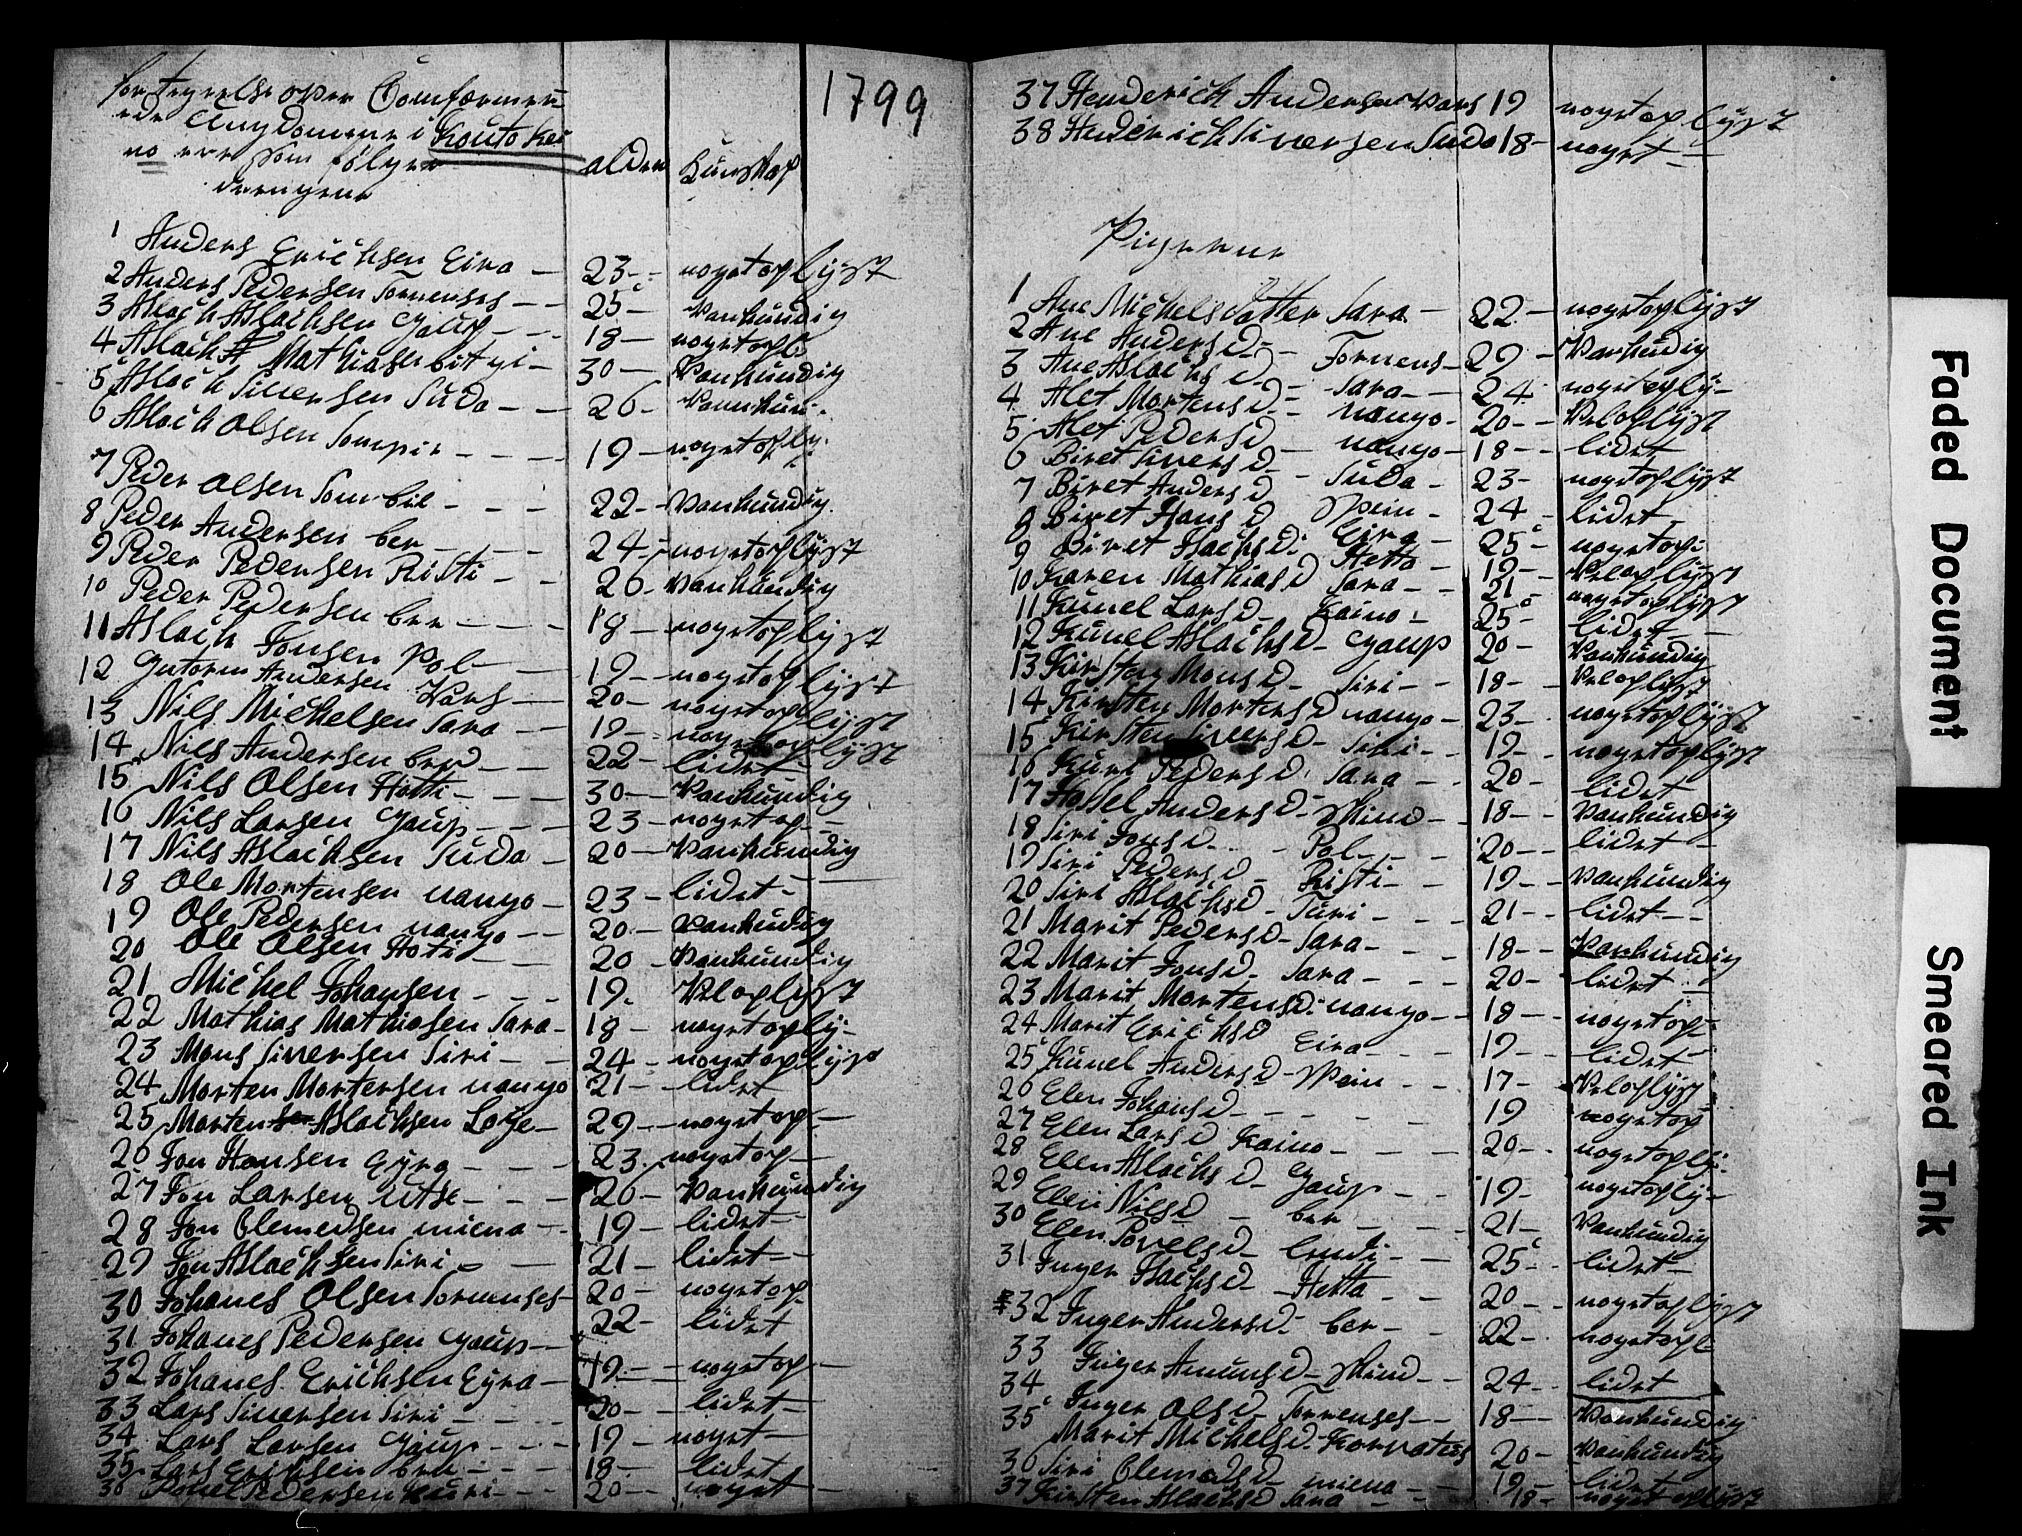 1799
fortegnelse over Comfermeri
ede Ungdomene i Koutokei
no ere som følger alder kunskap
drengene
1 Anders Erichsen Eira — 23 — nogetoplijst
2 Anders Pedersen Tornenses — — 25 — Vankundig
3 Aslach Aslachsen Gaup — — 18 — nogetopl:
4 Aslach Mathiasen bitgi — 30 — Vankundig
5 Aslach Siversen Suda — — 26 — Vannkun.
6 Aslach Olsen Sompir — — — 19 — nogetoply.
7 Peder Olsen Sombil — — — 22 — Vankundig.
8 Peder Andersen ber — — — 24 — nogetoplijst
9 Peder Pedersen Risti — — 26 — Vankundig
10 Peder Pedersen ber — — — 18 — nogetoplijst
11 Aslach Jonsen Pol — — 19 — nogetoplijst
12 Gutorm Andersen Vars — — 20 — nogetoplijst
13 Nils Michelsen Sara — — 19 — nogetoplijst
14 Nils Andersen ber — — — 22 — lidet —
15 Nils Olsen Hotti — — — 30 — Vankundig
16 Nils Larsen Gaup — — — 23 — nogetop —
17 Nils Aslachsen Suda — 20 — Vankundig
18 Ole Mortensen nango — 23 — lidet —
19 Ole Pedersen nango — — 20 — Vankundig
20 Ole Olsen Hoti — — — 20 — Vankundig
21 Michel Johansen — — — 19. Veloplyst
22 Mathias Mathiasen Sara — 18 — nogetoply —
23 Mons Siversen Siri — — 24 — nogetoplyst
24 Morten Mortensen nango 21 — lidet
25 Morten Aslachsen Loge — 29 — nogetop —
26 Jon Hansen Eyra — — — 23. nogetop —
27 Jon Larsen Utse — — — 26 — Vankundig
28 Jon Clemedsen miena — 19 — lidet —
29 Jon Aslachsen Siri — — 21 — lidet —
30 Johanes Olsen Tornenses — 20 — nogetop
31 Johanes Pedersen Gaup — 22 — lidet
32 Johanes Erichsen Eyra — 19 — nogetop —
33 Lars Siversen Siri — — — 20 — lidet —
34 Lars Larsen Gaup — — — 19 — noget —
35 Lars Erichsen — — — 18 — lidet
36 Povel Pedersen Kuri — — 20 — noget —
37 Henderich Andersen Vars 19 nogetoplijst
38 Henderich Siversen Suda 18 — noget —
Pigerne
1 Ane Michelsdatter Sara — 22 — nogetoplijst
2 Ane Andersd — Tornens — 29 — Vankundig
3 Ane Aslachsd — Sara — 24 nogetoply —
4 Alet Mortensd — nango — 20 — Veloplijst
5 Alet Pedersd — nango — 18 — lidet
6 Biret Siversd — Suda — 23 — nogetoplijst
7 Biret Andersd Spein — 24 — lidet —
8 Biret Hansd Eira — 25 — nogetop
9 Biret Isachsd: Hetta — 19 — Veloplijst
10 Karen Mathiasd Sara — — 21 nogetoplijst
11 Kunel Larsd — Kaino — 25 — lidet —
12 Kunel Aslachsd — Gaup 20 — Vankundig
13 Kirsten Monsd — Siri — — 18 — Veloplijst
14 Kirsten Mortensd nango — 23 — nogetoplijst
15 Kirsten Siversd — Siri — — 19 — nogetoplijst
16 Kuri Pedersd: Sara — — 20 — lidet
17 Andersd — Skind — 18 — Vankundig
18 Siri Jonsd — Pol — — — 20 — lidet —
19 Siri Pedersd — Risti — — 19 — Vankundig
20 Siri Aslachsd — Turi — — — 21 — lidet — —
21 Marit Pedersd — Sara — — — 18 — Vankundig
22 Marit Jonsd — Sara — — — 20 — lidet —
23 Marit Mortensd: nango — — 18 — nogetop —
24 Marit Erichsd Eira — — — 19 — lidet —
25 Kunel Andersd — Spein — — 17 — Veloplijst
26 Elen Johansd — — — — — 19 nogetop
27 Elen Larsd Kaino — — — 20 — nogetoply.
28 Elen Aslachsd — Gaup — — 19 — nogetoply —
29 Elen Nilsd — ber — — — 21 — Vankundig
30 Elen Povelsd — — — 25 — lidet —
31 Inger Isachsd — Hetta — — 20 — nogetoplijst
32 Inger Andersd. ber — — 22 — nogetopl —
33 Inger Amunsd — Skind — — 24 — lidet
34 Inger Olsd — Tornenses — — 18 — Vankundig
35 Marit Michelsd — 20 — Vankundig
36 Siri Clemedsd — miena — — 19 — lidet —
37 Kirsten Aslachsd Sara — — 18 — nogetoplijst
Faded Document
Smeared Ink